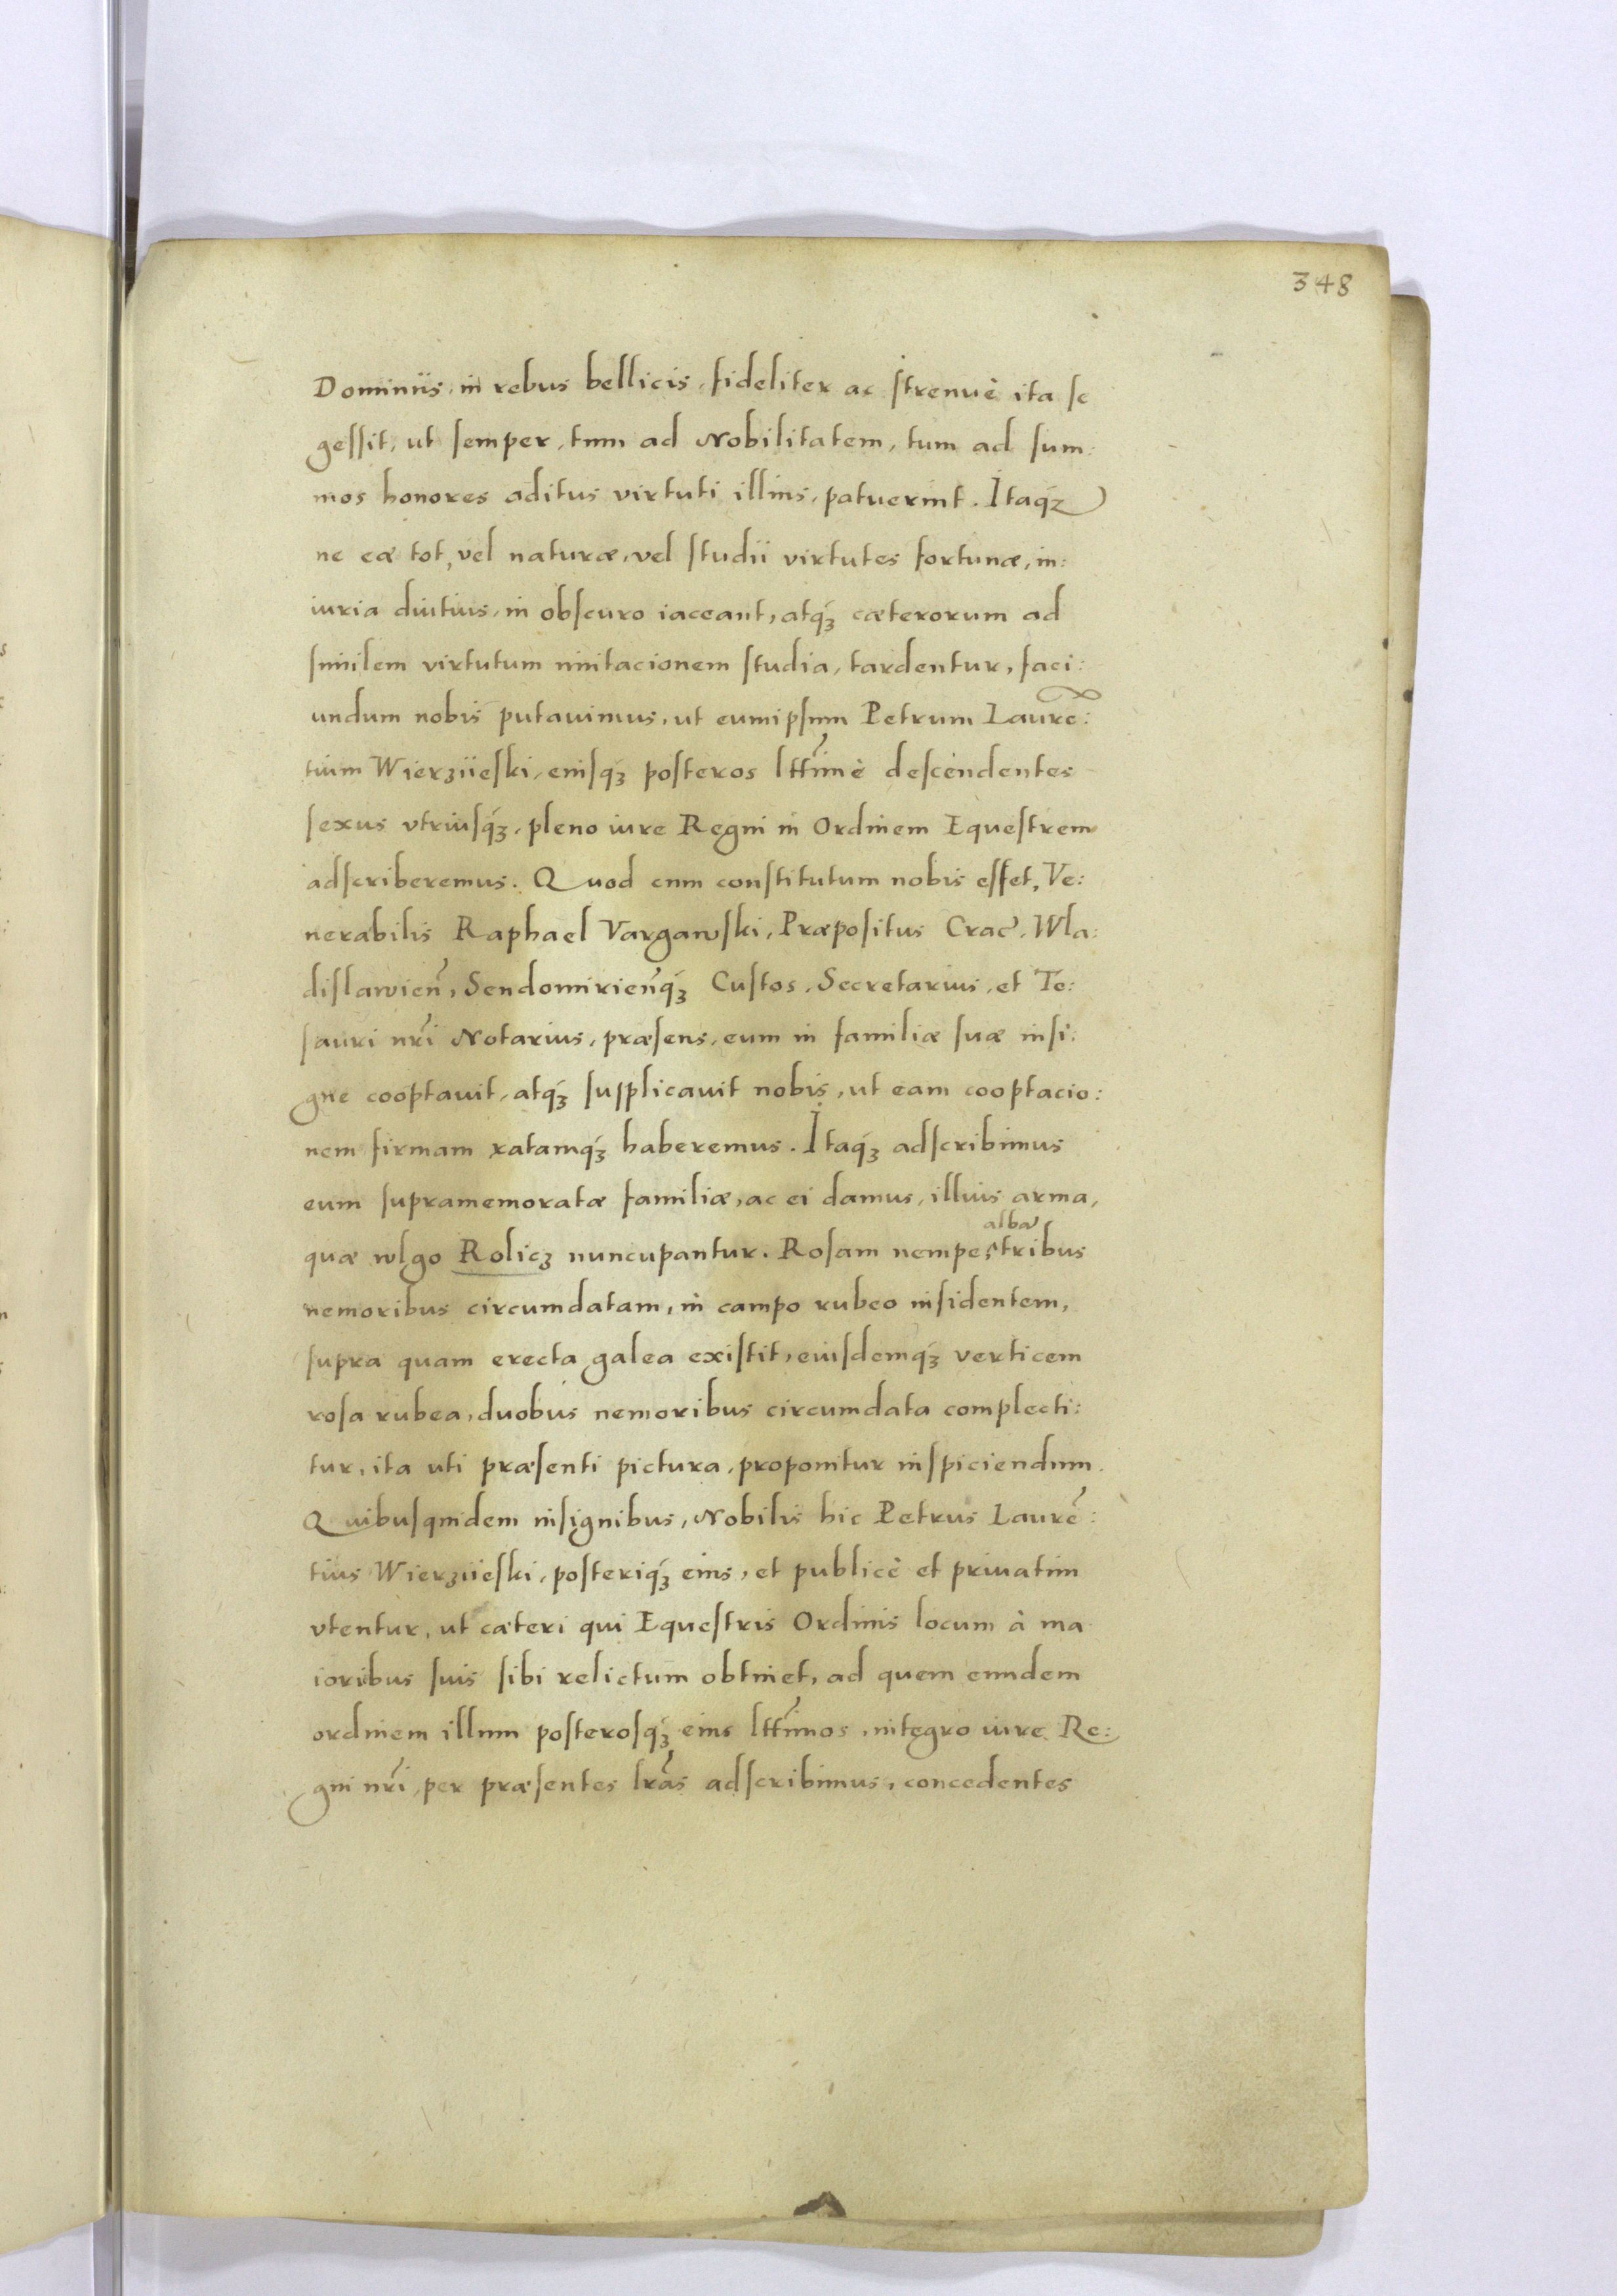 348
Dominiis, in rebus bellicis, fideliter ac strenuè ita se
gessit, ut semper, tum ad Nobilitatem, tum ad sum:
mos honores aditus virtuti illius, patuerint. Itaq́ꝫ
ne eæ tot, vel naturæ, vel studii virtutes fortunæ, in:
iuria diutius, in obscuro iaceant, atq́ꝫ cæterorum ad
similem virtutum imitacionem studia, tardentur, faci:
undum nobis putauimus, ut eumipsum Petrum Laurẽ:
tium Wierziieski, eiusq́ꝫ posteros lttimè descendentes
sexus vtriusq́ꝫ, pleno iure Regni in Ordinem Equestrem
adscriberemus. Quod cum constitutum nobis esset, Ve:
nerabilis Raphael Vargawski, Præpositus Crac̃, Wla:
dislawieñ, Sendomirieñq́ꝫ Custos, Secretarius, et Te:
sauri nr̃i Notarius, præsens, eum in familiæ suæ insi:
gne cooptauit, atq́ꝫ supplicauit nobis, ut eam cooptacio:
nem firmam ratamq́ꝫ haberemus. Itaq́ꝫ adscribimus
eum supramemoratæ familiæ, ac ei damus, illius arma,
alba
quæ wlgo Rolicz nuncupantur. Rosam nempe, tribus
nemoribus circumdatam, in campo rubeo insidentem,
supra quam erecta galea existit, eiusdemq́ꝫ verticem
rosa rubea, duobus nemoribus circumdata complecti:
tur, ita uti præsenti pictura, proponitur inspiciendum.
Quibusquidem insignibus, Nobilis hic Petrus Laurẽ:
tius Wierziieski, posteriq́ꝫ eius, et publicè et priuatim
vtentur, ut cæteri qui Equestris Ordinis locum à ma
ioribus suis sibi relictum obtinet, ad quem eundem
ordinem illum posterosq́ꝫ eius lttimos, integro iure Re:
gni nr̃i, per præsentes lrãs adscribimus, concedentes